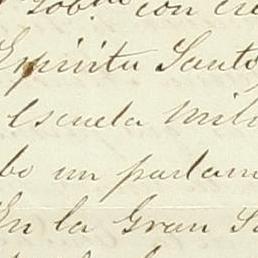 con
Espiritu Santo
Escuela Mili
bo un parlam
En la Gran S